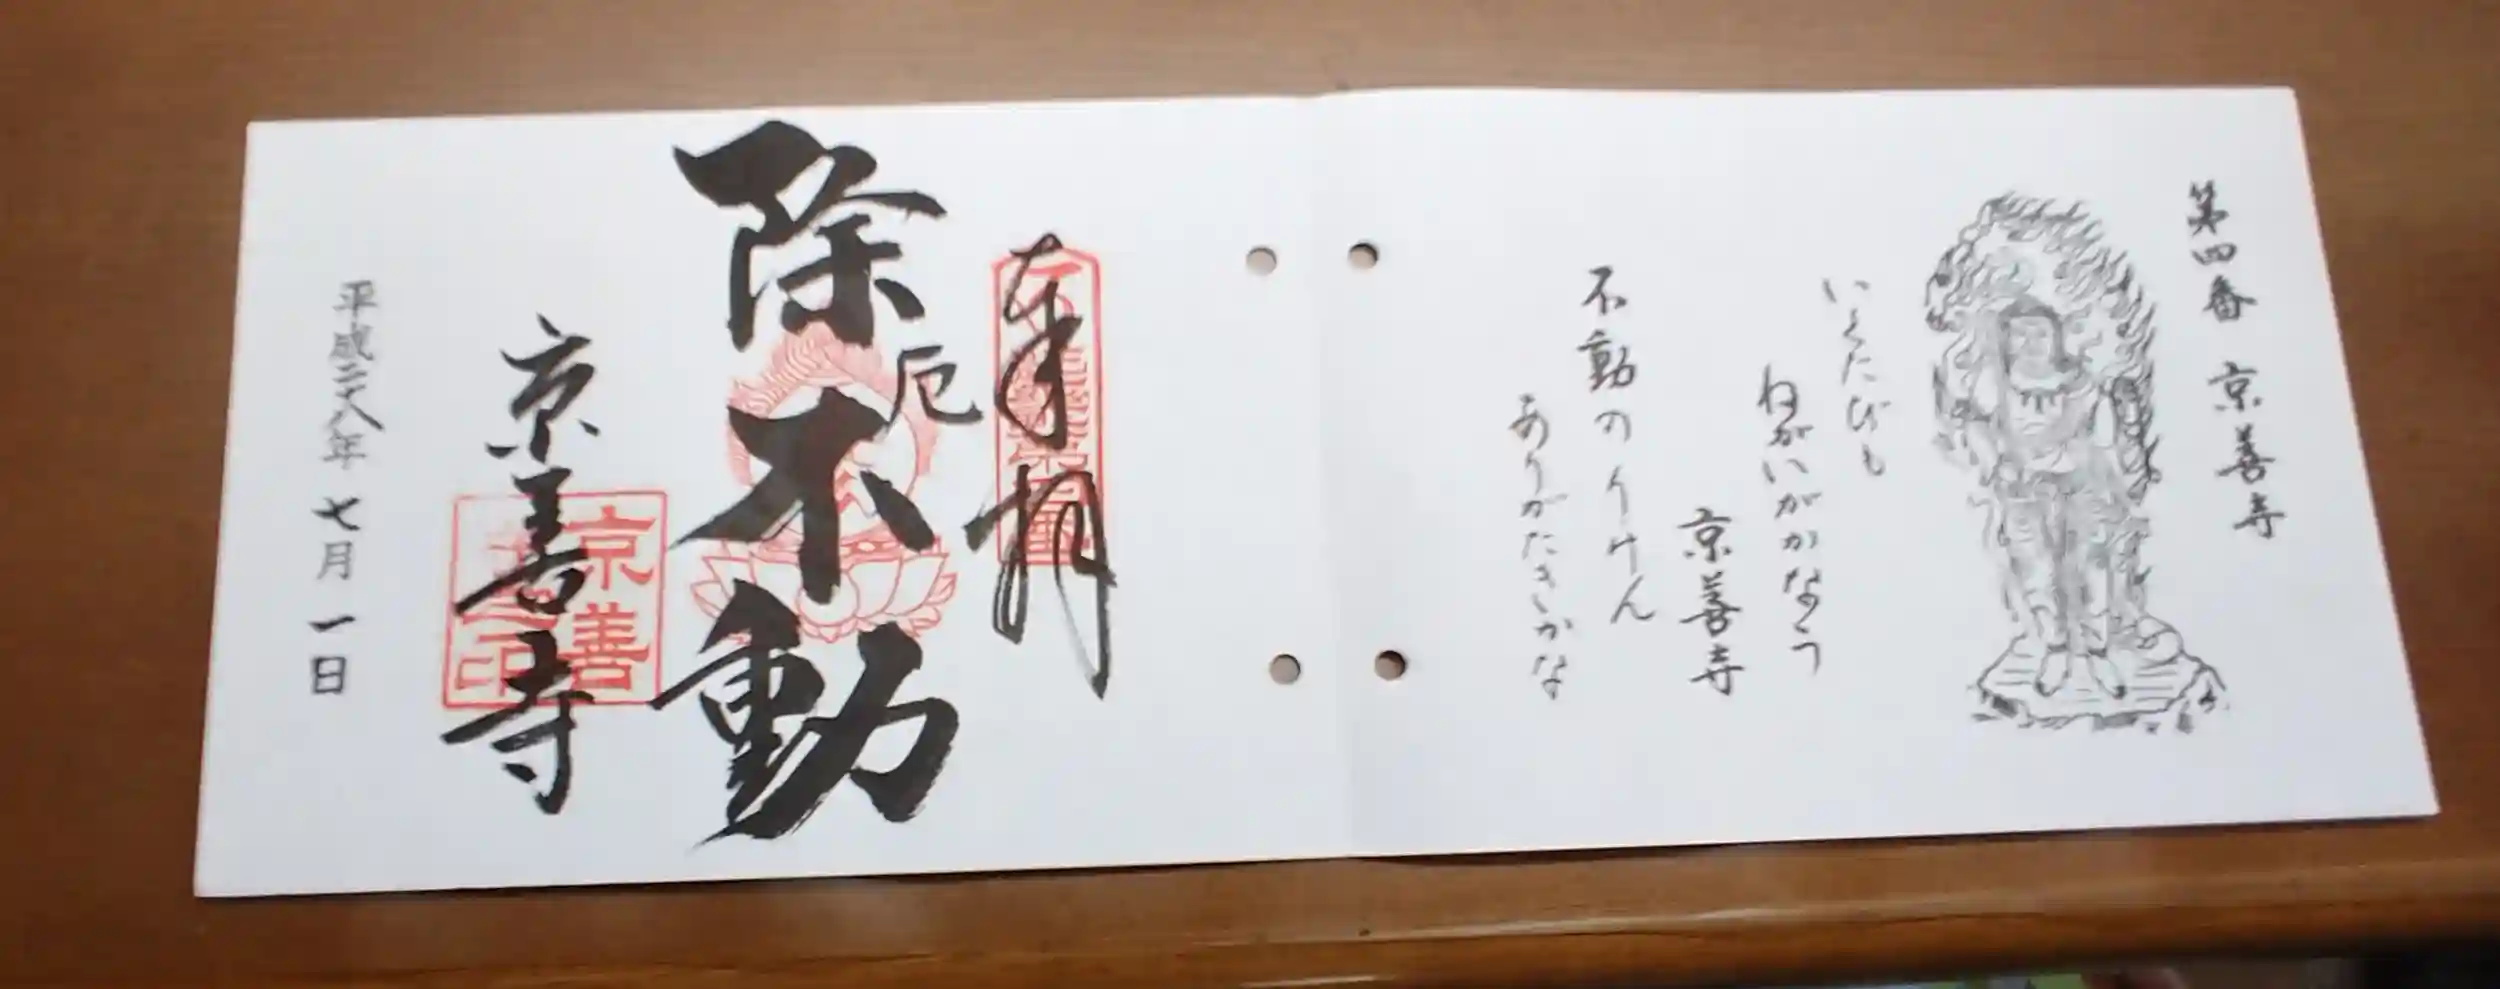 第四番 京善寺
いくたびも
ねがいがかなう
京善寺
不動のりけん
ありがたきかな
奉拝
除厄不動
京善寺
京善
印
平成二十八年七月一日